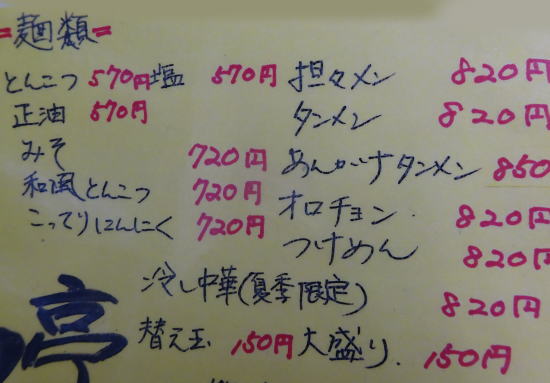 =麺類=
とんこつ 570円 塩 570円 担々メン 820円
正油 570円 タンメン 820円
みそ 720円 あんかけタンメン 850
和風とんこつ 720円 オロチョン 820円
こってりにんにく 720円 つけめん 820円
冷し中華(夏季限定) 820円
替え玉 150円 大盛り 150円
亭